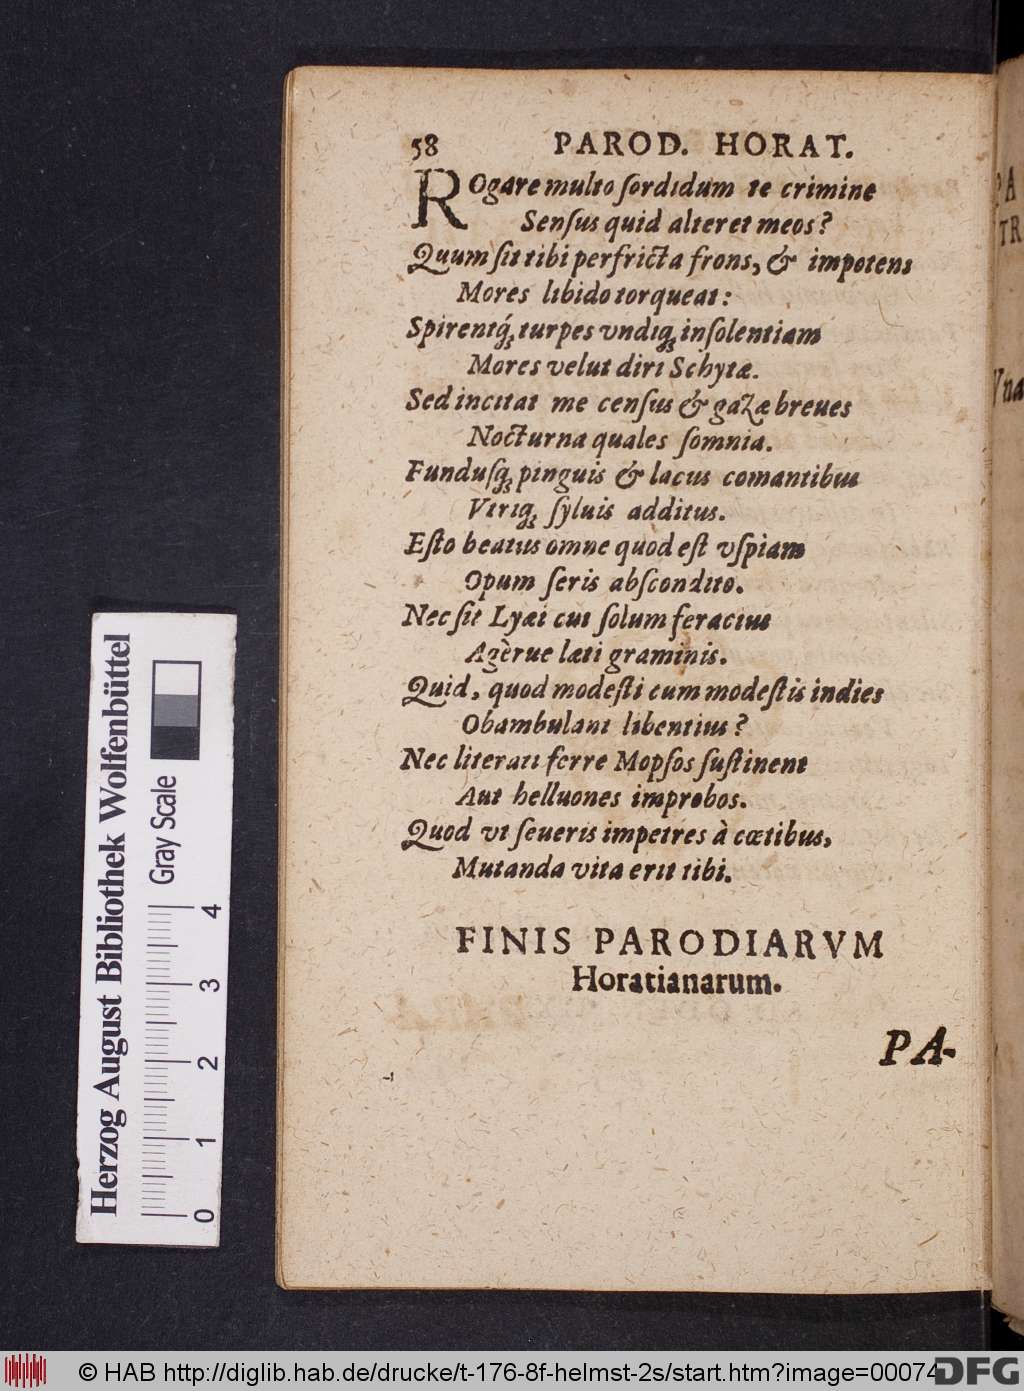 58 PAROD. HORAT.
ROgare multo ſordidum te crimine
Senſus quid alteret meos?
Quum ſit tibi perfricta frons, & impotens
Mores libido torqueat:
Spirentq́; turpes vndiq; inſolentiam
Mores velut diri Schytæ.
Sed incitat me cenſus & gazæ breues
Nocturna quales ſomnia.
Funduſq; pinguis & lacus comantibus
Vtriq; ſyluis additus.
Eſto beatus omne quod eſt vſpiam
Opum ſeris abſcondito.
Nec ſit Lyæi cui ſolum feracius
Agèrue læti graminis.
Quid, quod modeſti cum modeſtis indies
Obambulant libentius?
Nec literati ferre Mopſos ſuſtinent
Aut helluones improbos.
Quod vt ſeueris impetres à cœtibus,
Mutanda vita erit tibi.
FINIS PARODIARVM
Horatianarum.
PA-
PA
TR
Vna
Herzog August Bibliothek Wolfenbüttel
Gray Scale
0 1 2 3 4
© HAB http://diglib.hab.de/drucke/t-176-8f-helmst-2s/start.htm?image=00074
DFG